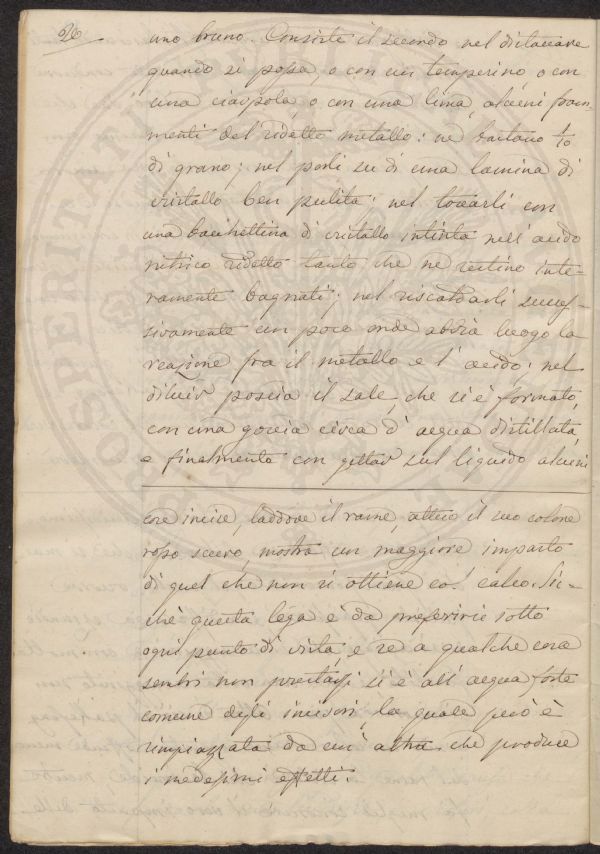 26
uno bruno. Consiste il secondo nel distaccare
quando si possa, o con un temperino, o con
una ciappola, o con una lima, alcuni fram-
menti del ridetto metallo: ne bastano to
di grano; nel porli su di una lamina di
cristallo ben pulita; nel toccarli con
una bacchettina di cristallo intinta nell' acido
nitrico ridetto tanto che ne restino inte-
ramente bagnati; nel riscaldarli succes-
sivamente un poco onde abbia luogo la
reazione fra il metallo e l' acido; nel
diluir poscia il sale, che si è formato,
con una goccia circa d' acqua distillata,
e finalmente con gettar sul liquido alcuni
cose incise, laddove il rame, atteso il suo colore
rosso scuro, mostra un maggiore impasto
di quel che non si ottiene col calco. Sic-
chè questa lega è da preferirsi sotto
ogni punto di vista, e se a qualche cosa
sembri non prestarsi si è all' acqua forte
comune degli incisori, la quale però è
rimpiazzata da un' altra che produce
i medesimi effetti.
PROSPERITATI